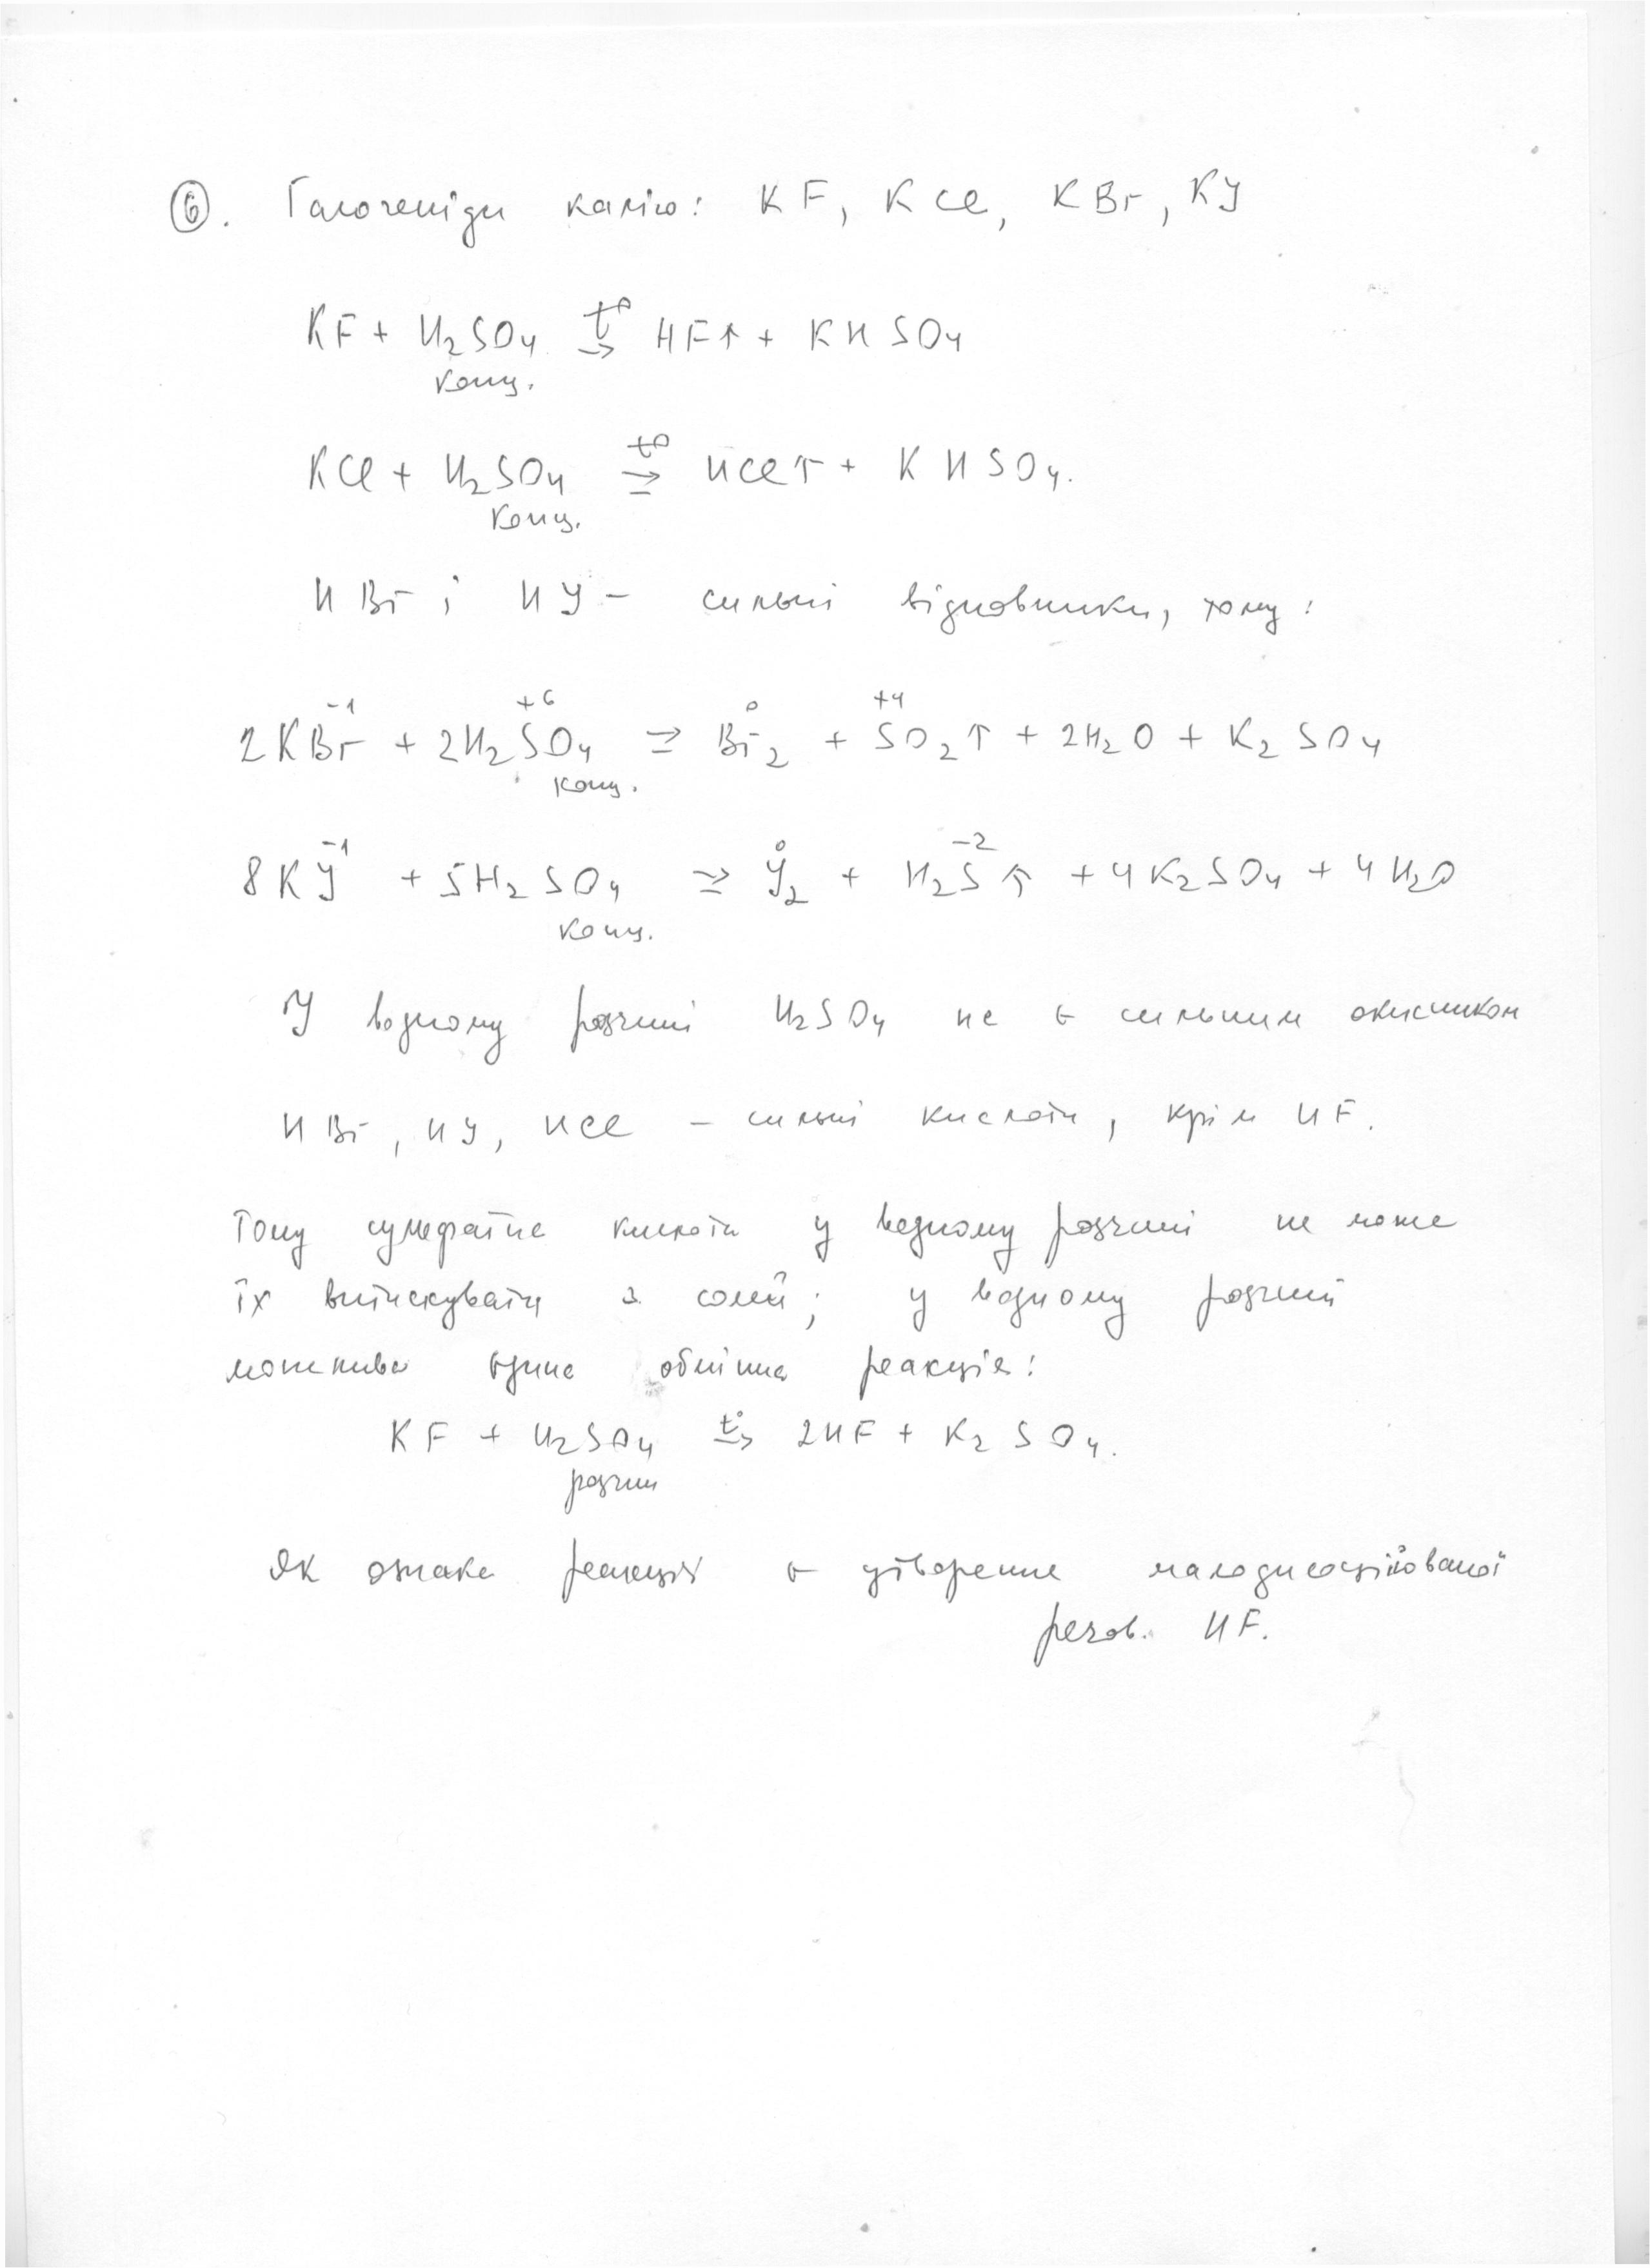 6. Галогеніди калію: KF, KCl, KBr, KJ
KF + H2SO4 конц. t°→ HF↑ + KHSO4
KCl + H2SO4 конц. t°→ HCl↑ + KHSO4.
HBr і HJ – сильні відновники, тому:
2KBr⁻¹ + 2H2S⁺⁶O4 конц. → Br2⁰ + S⁺⁴O2↑ + 2H2O + K2SO4
8KJ⁻¹ + 5H2SO4 конц. → J2⁰ + H2S⁻²↑ + 4K2SO4 + 4H2O
У водному розчині H2SO4 не є сильним окисником
HBr, HJ, HCl – сильні кислоти, крім HF.
Тому сульфатна кислота у водному розчині не може
їх витискувати з солей; у водному розчині
можлива єдина обмінна реакція:
KF + H2SO4 розчин t°→ 2HF + K2SO4.
Як ознака реакції є утворення малодисоційованої
речов. HF.